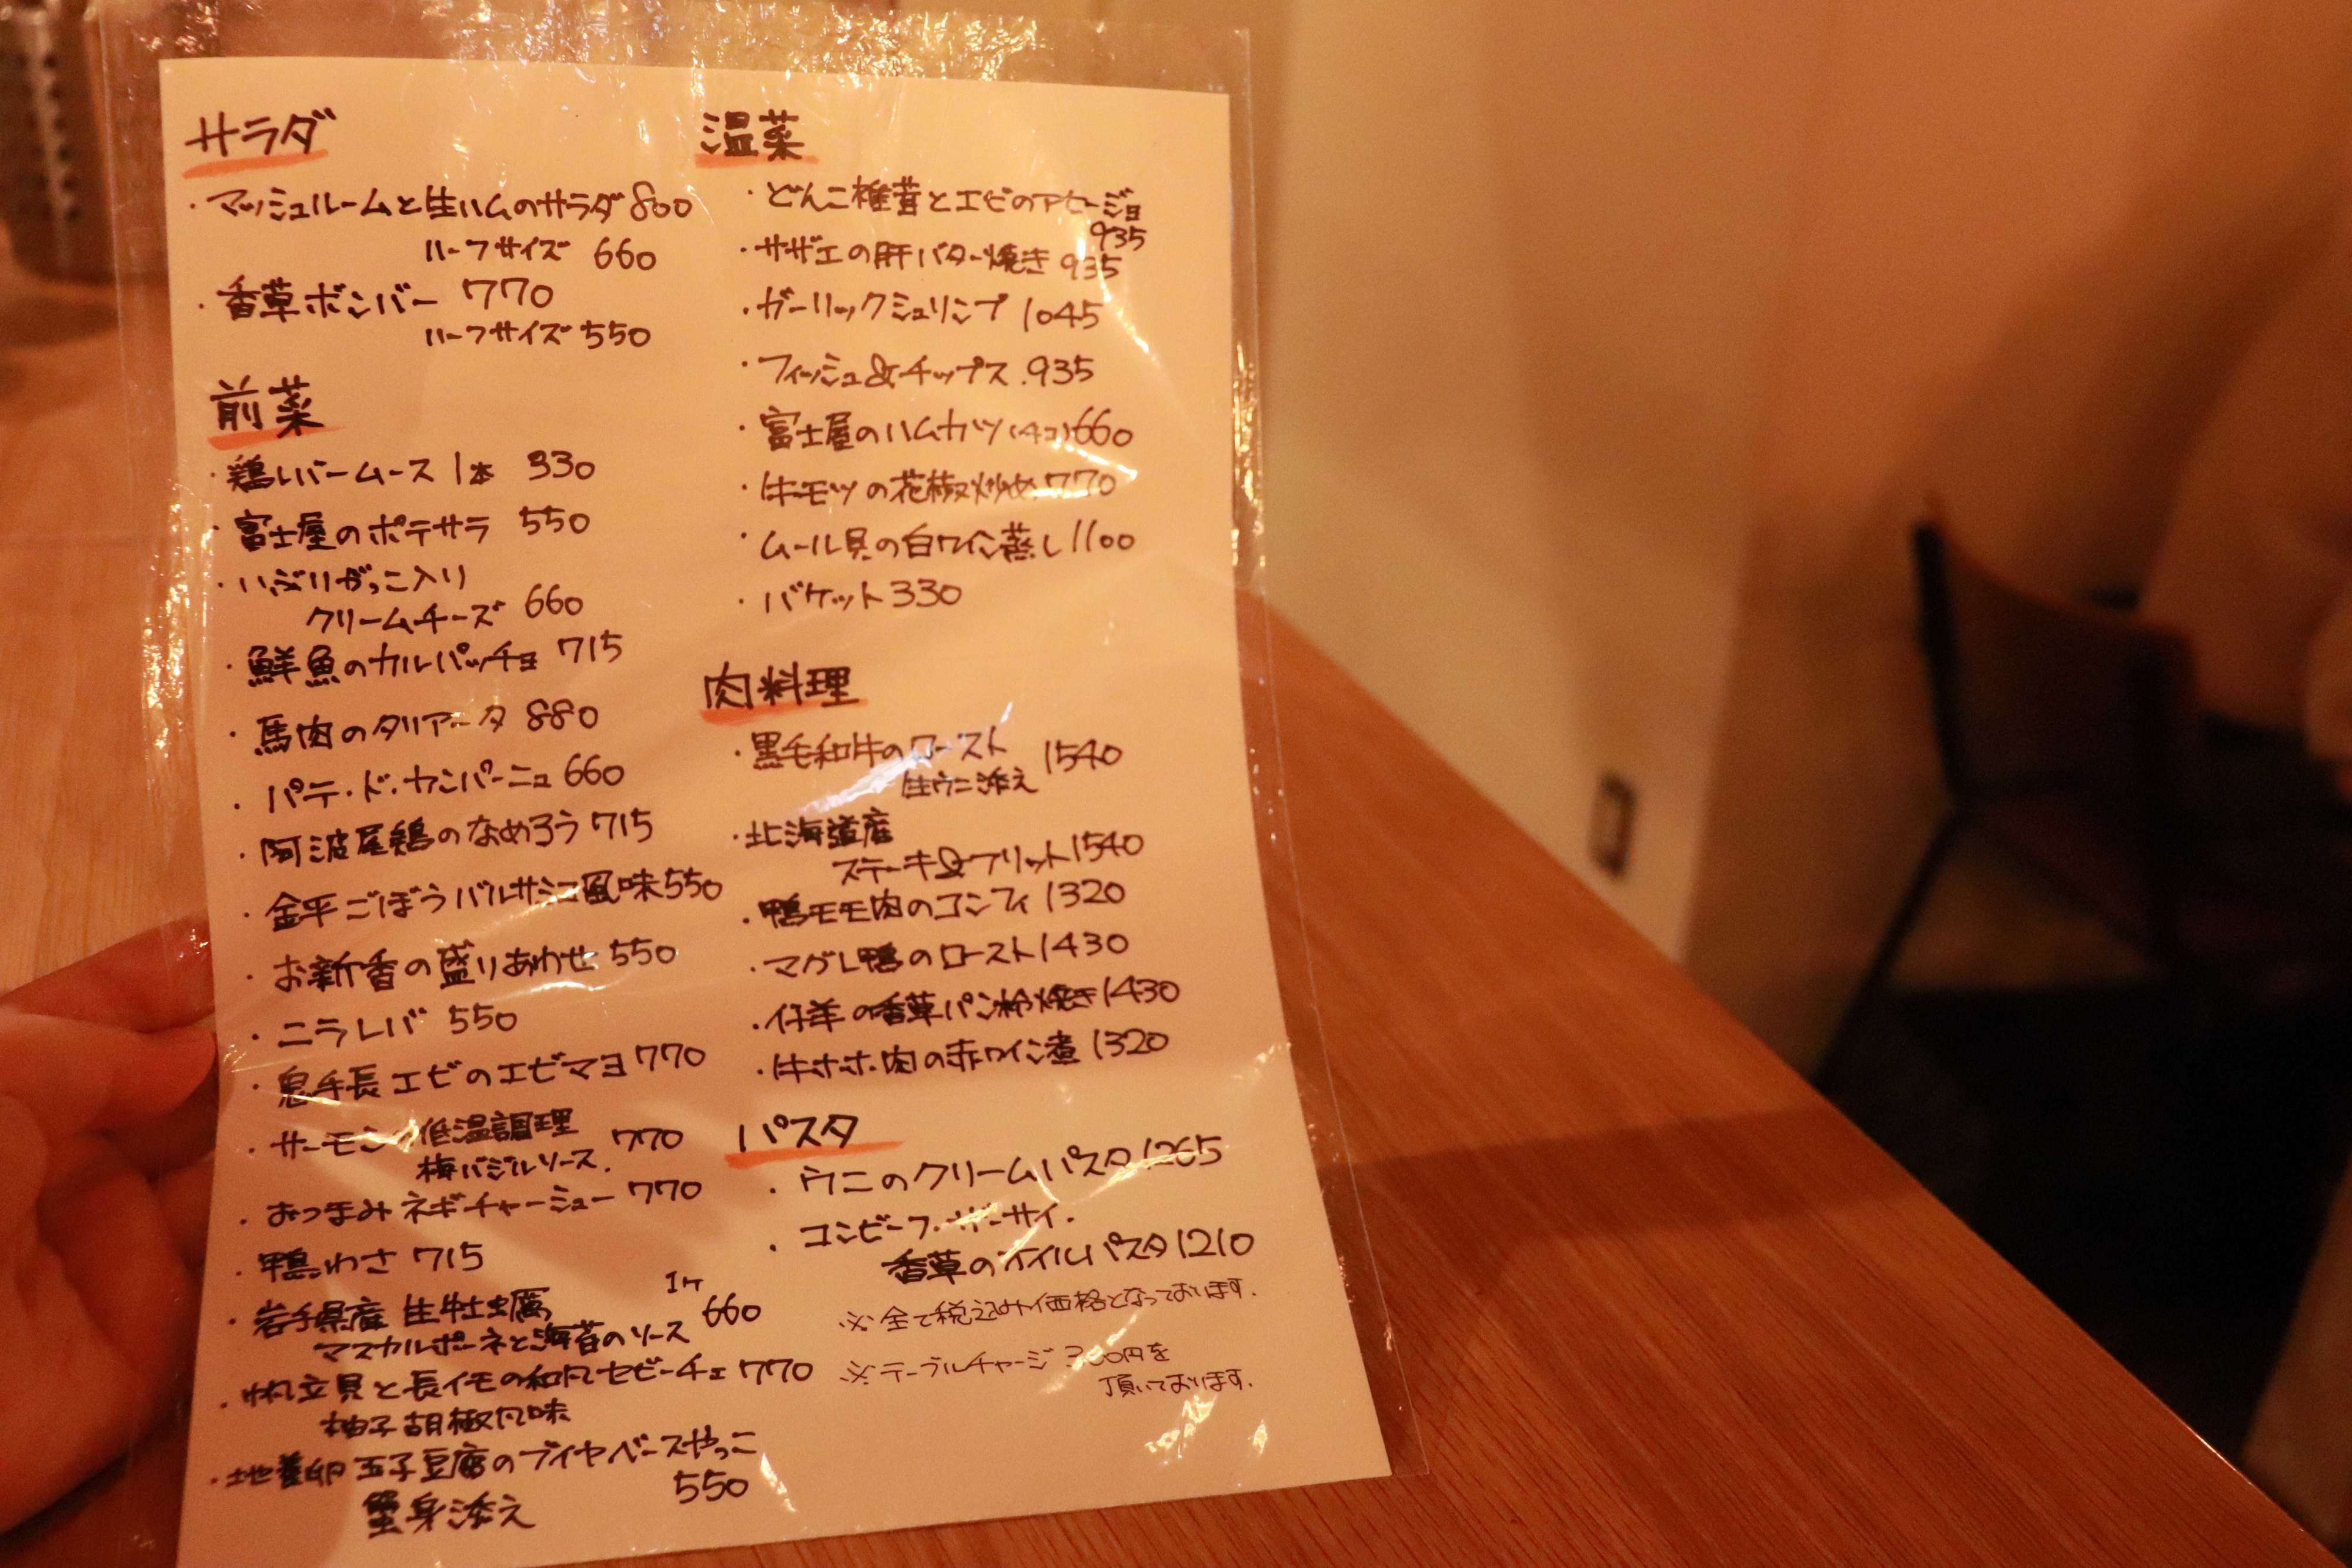 サラダ
・マッシュルームと生ハムのサラダ 800
ハーフサイズ 660
・香草ボンバー 770
ハーフサイズ 550
前菜
・鶏レバームース 1本 330
・富士屋のポテサラ 550
・いぶりがっこ入り
クリームチーズ 660
・鮮魚のカルパッチョ 715
・馬肉のタリアータ 880
・パテ・ド・カンパーニュ 660
・阿波尾鶏のなめろう 715
・金平ごぼうバルサミコ風味 550
・お新香の盛りあわせ 550
・ニラレバ 550
・鬼手長エビのエビマヨ 770
・サーモンの低温調理 770
梅バジルソース.
・おつまみネギチャーシュー 770
・鴨わさ 715
・岩手県産 生牡蠣 1ヶ 660
マスカルポーネと海苔のソース
・帆立貝と長イモの和風セビーチェ 770
柚子胡椒風味
・地養卵 玉子豆腐のブイヤベースやっこ
蟹身添え 550
温菜
・どんこ椎茸とエビのアヒージョ
935
・サザエの肝バター焼き 935
・ガーリックシュリンプ 1045
・フィッシュ&チップス. 935
・富士屋のハムカツ(4コ) 660
・牛モツの花椒炒め 770
・ムール貝の白ワイン蒸し 1100
・バケット 330
肉料理
・黒毛和牛のロースト 1540
生ウニ添え
・北海道産
ステーキ&フリット 1540
・鴨モモ肉のコンフィ 1320
・マグレ鴨のロースト 1430
・仔羊の香草パン粉焼き 1430
・牛ホホ肉の赤ワイン煮 1320
パスタ
・ウニのクリームパスタ 1265
・コンビーフ・ザーサイ・
香草のオイルパスタ 1210
※全て税込み価格となっております.
※テーブルチャージ 300円を
頂いております.